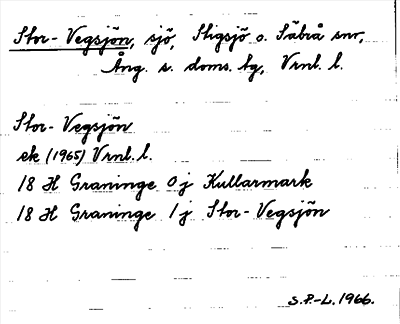 Stor-Vegsjön, sjö, Stigsjö o. Säbrå snr,
Ång. s. doms. bg, Vrnl. l.
Stor-Vegsjön
ek (1965) Vrnl. l.
18 H Graninge 0 j Kullarmark
18 H Graninge 1 j Stor-Vegsjön
S.P.-L. 1966.